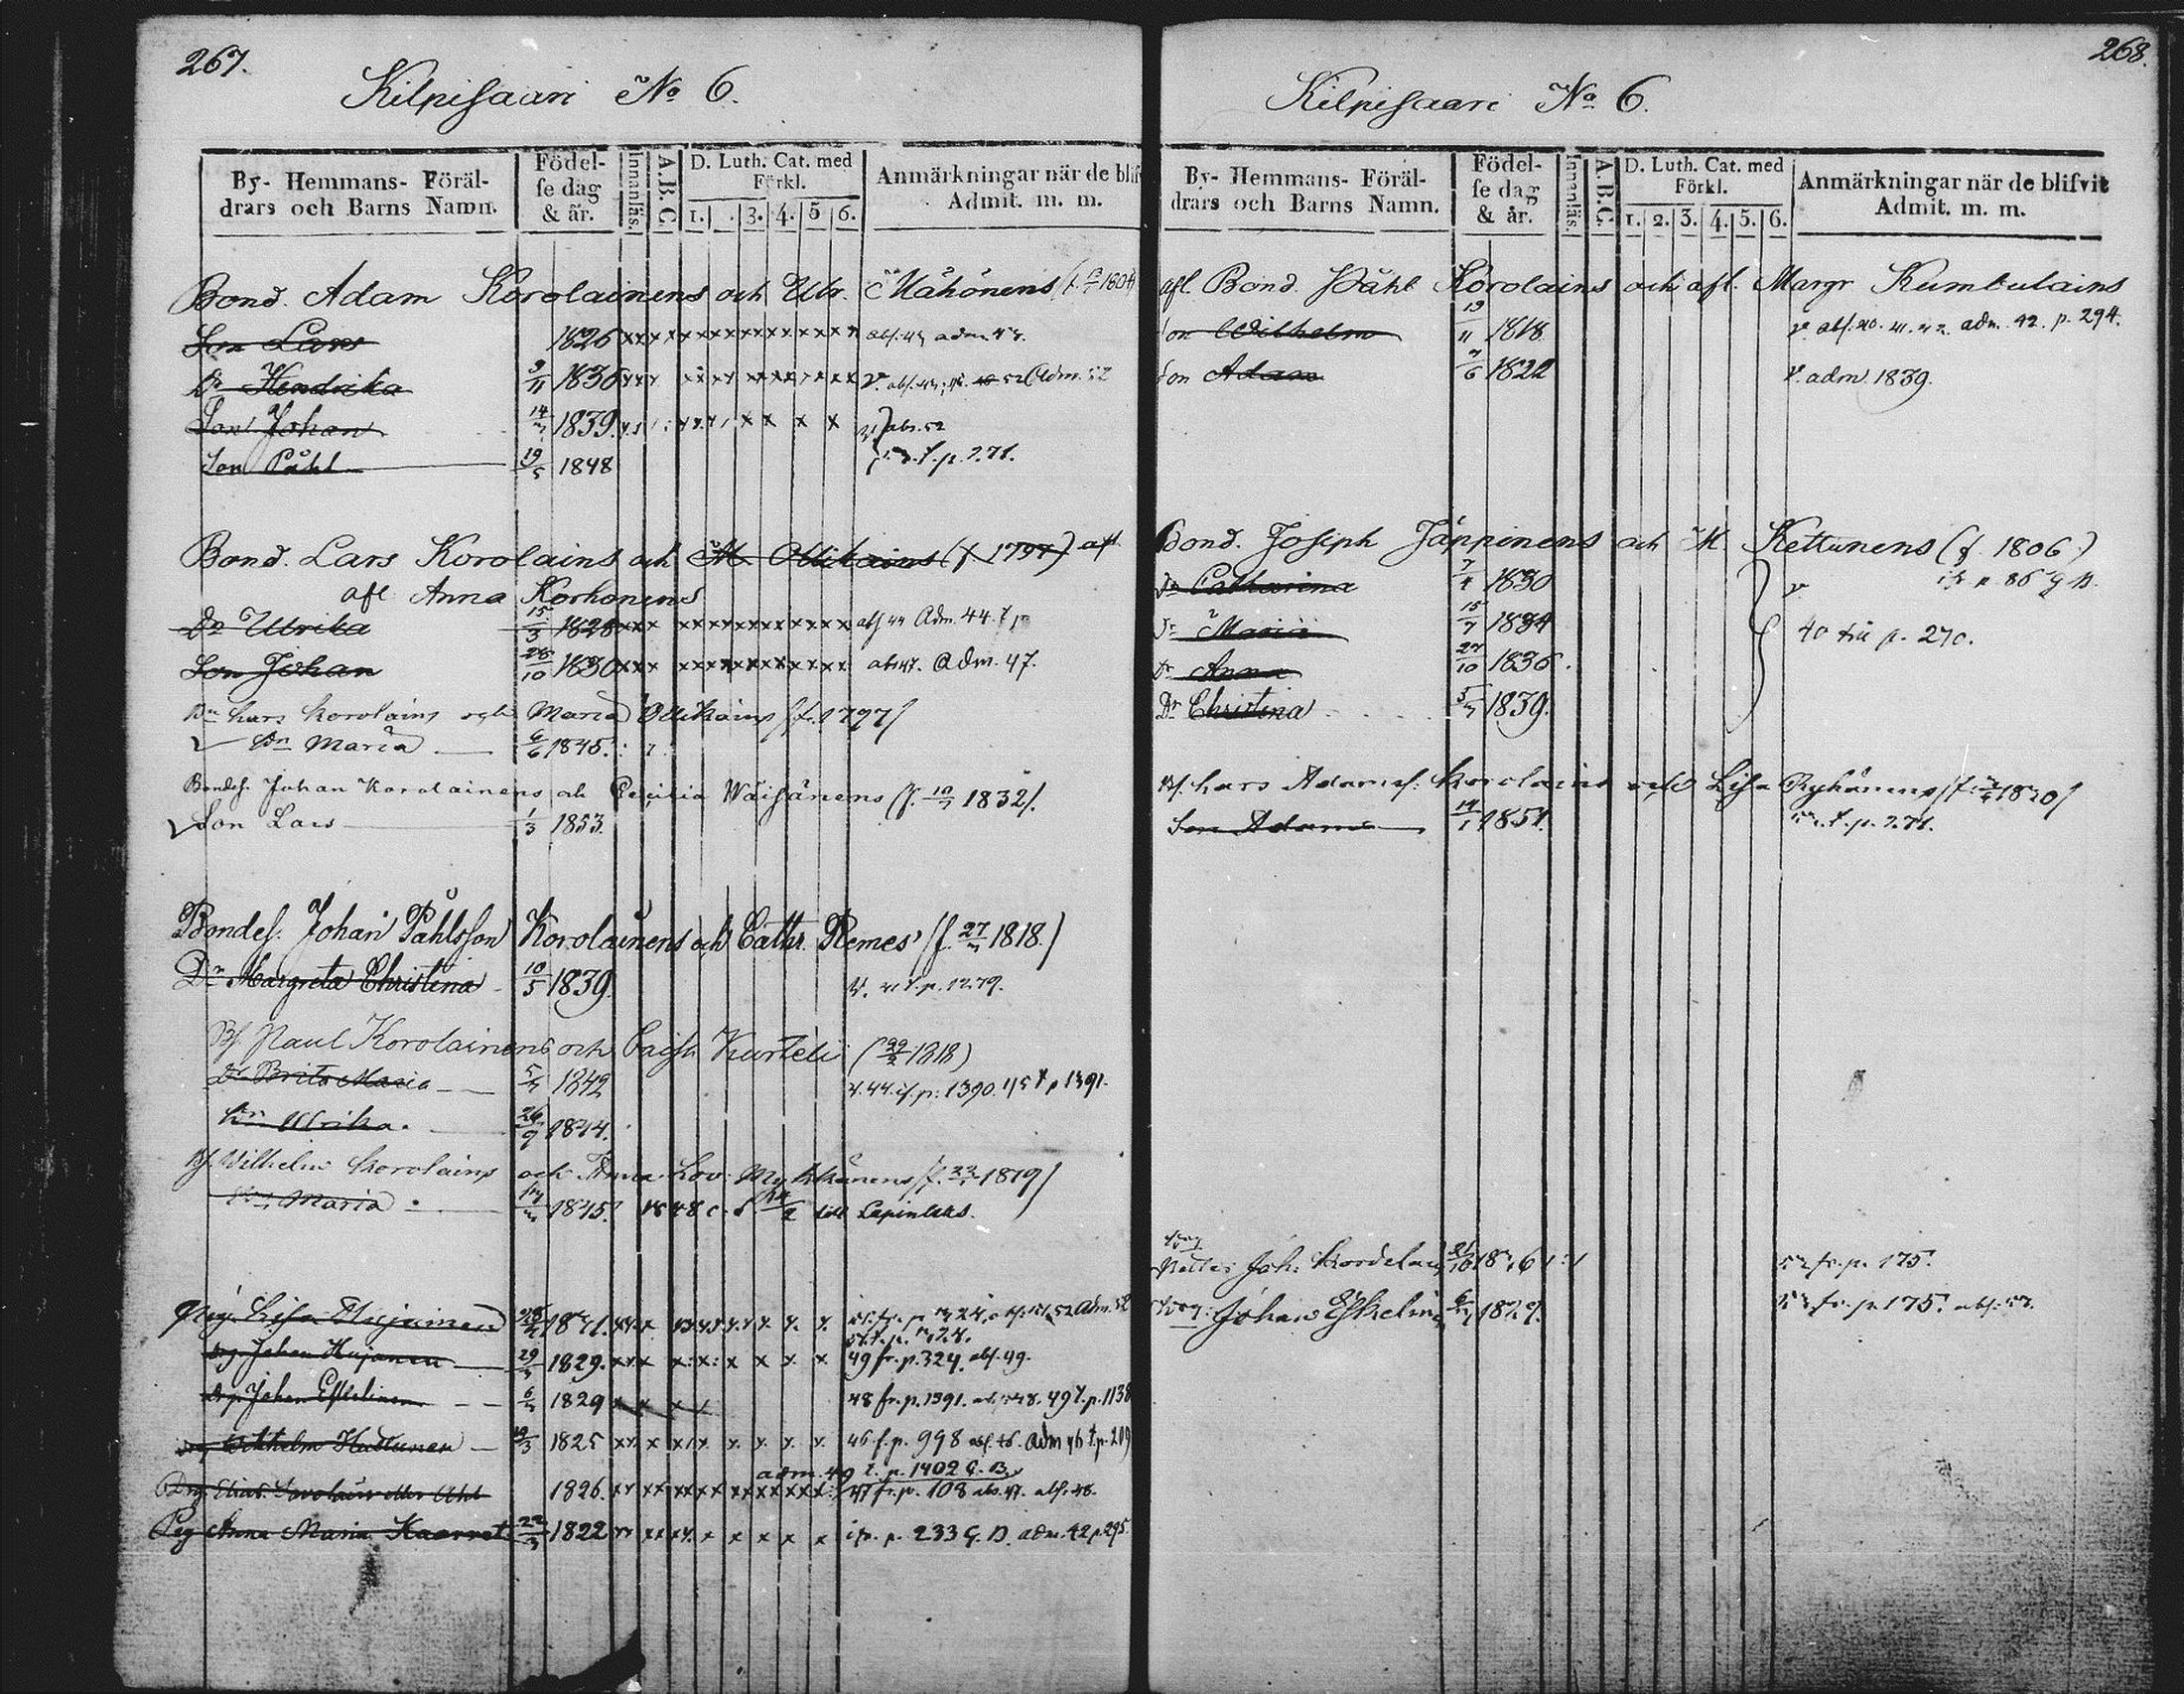 267.
Kilpisaari No 6.
By- Hemmans- Föräl-
drars och Barns Namn.
Födel-
se dag
& år.
Innanläs.
A.B.C.
D. Luth. Cat. med
Förkl.
1. 3. 4. 5 6.
Anmärkningar när de blif
Admit. m. m.
Bond. Adam Korolainens och Ulr. Måhönens (f. 1804)
Son Lars 1826 abs. 43 adm. 43.
Dr Hendrika 9/11 1836 Adm. 52
Son Johan 14/7 1839. abs. 52
Son Påhl 19/5 1848 t. p. 271.
Bond. Lars Korolains och M Ollikains (f. 1797) afl
afl. Anna Korhonens
Dr Ulrika 15/3 1828 abs 44 Adm. 44. t p
Son Johan 28/10 1830 abs 47. Adm. 47.
Bn Lars Korolains och Maria Ollikains /f. 1797/
Dr Maria 6/6 1845.
Bondes. Johan Korolainens och Cecilia Wäisänens (f. 10/7 1832/.
Son Lars 1/3 1853.
Bondes. Johan Påhlsson Korolainens och Cathr. Remes (f 27/7 1818.)
Dr Margreta Christina 10/5 1839. t. p. 1279.
Bs. Paul Korolainens och Caisa Kurteli (22/2 1818)
Dr Brita Maria 5/7 1842 v. 44. if. p. 1390. 45 t p 1391.
Dr Ulrika. 26/9 1844.
Bs. Wilhelm Korolains och Anna Lov. Mykkänens /f. 1819/
Dr Maria 1845. 1848 till Lapinlaks.
Pig. Lisa Hujanen 1841. Adm. 52
Drg. Johan Hujanen 29/7 1829. 49 fr. p. 324. abs. 49.
Drg. Johan Eskelinen 6/7 1829 48 fr. p. 1391. 49 t. p. 1138
Drg. Wilhelm Huttunen 19/3 1825 46 f. p. 998 abs. 46. Adm 46 t. p. 209
adm. 49 t. p. 1402 G. B.
Drg. Elias Savolain eller Ahl 1826. 47 fr. p. 108 abs. 47. abs. 48.
Pig Anna Maria Kaarret 22/3 1822 ifr. p. 233 G. B. adm. 42 p. 295.
268.
Kilpisaari No 6.
By- Hemmans- Föräl-
drars och Barns Namn.
Födel-
se dag
& år.
Innanläs.
A.B.C.
D. Luth. Cat. med
Förkl.
1. 2. 3. 4. 5. 6.
Anmärkningar när de blifvit
Admit. m. m.
afl. Bond. Påhl Korolains och afl. Margr Kumbulains
Son Wilhelm 19/11 1818. v. abs. 40. 41. 42. adm. 42. p. 294.
Son Adam 7/6 1822 v. adm. 1839.
Bond. Joseph Jäppinens och M. Kettunens (f. 1806)
Dr Catharina 7/4 1830 v ifr p 86 g B.
Dr Maria 15/7 1834 40 till p. 270.
Dr Anna 27/10 1836.
Dr Christina 5/7 1839.
Bs. Lars Adamss. Korolains och Lisa Ryhänens /f. 1830/
Son Adam 14/1 1851. t. p. 271.
Drg
Petter Joh. Kordelin 21/10 52 fr. p. 175.
Drg: Johan Eskelin 6/7 1829. fr. p. 175. abs. 53.